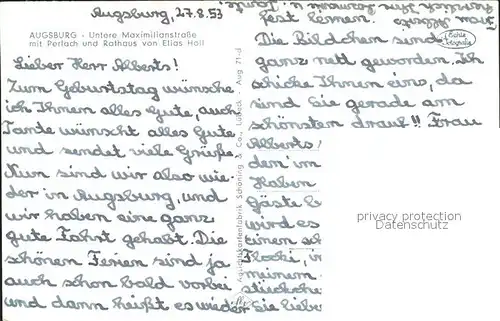 Augsburg, 27.8.53
AUGSBURG - Untere Maximilianstraße
mit Perlach und Rathaus von Elias Holl
Lieber Herr Alberts!
Zum Geburtstag wünsche
ich Ihnen alles Gute, auch
Tante wünscht alles Gute
und sendet viele Grüße.
Nun sind wir also wie-
der in Augsburg, und
wir haben eine ganz
gute Fahrt gehabt. Die
schönen Ferien sind ja
auch schon bald vorbei
und dann heißt es wieder
fest lernen.
Die Bildchen sind
ganz nett geworden. Ich
schicke Ihnen eins, da
sind Sie gerade am
schönsten drauf!! Frau
Alberts
dem im
Haben
Gäste b
wird es
einem
Flocki, in
meinem
Stückche
Sie liebe
herzlich Ihre
Ansichtskartenfabrik Schöning & Co., Lübeck
Aug 71
Echte
Fotografie
privacy protection
Datenschutz